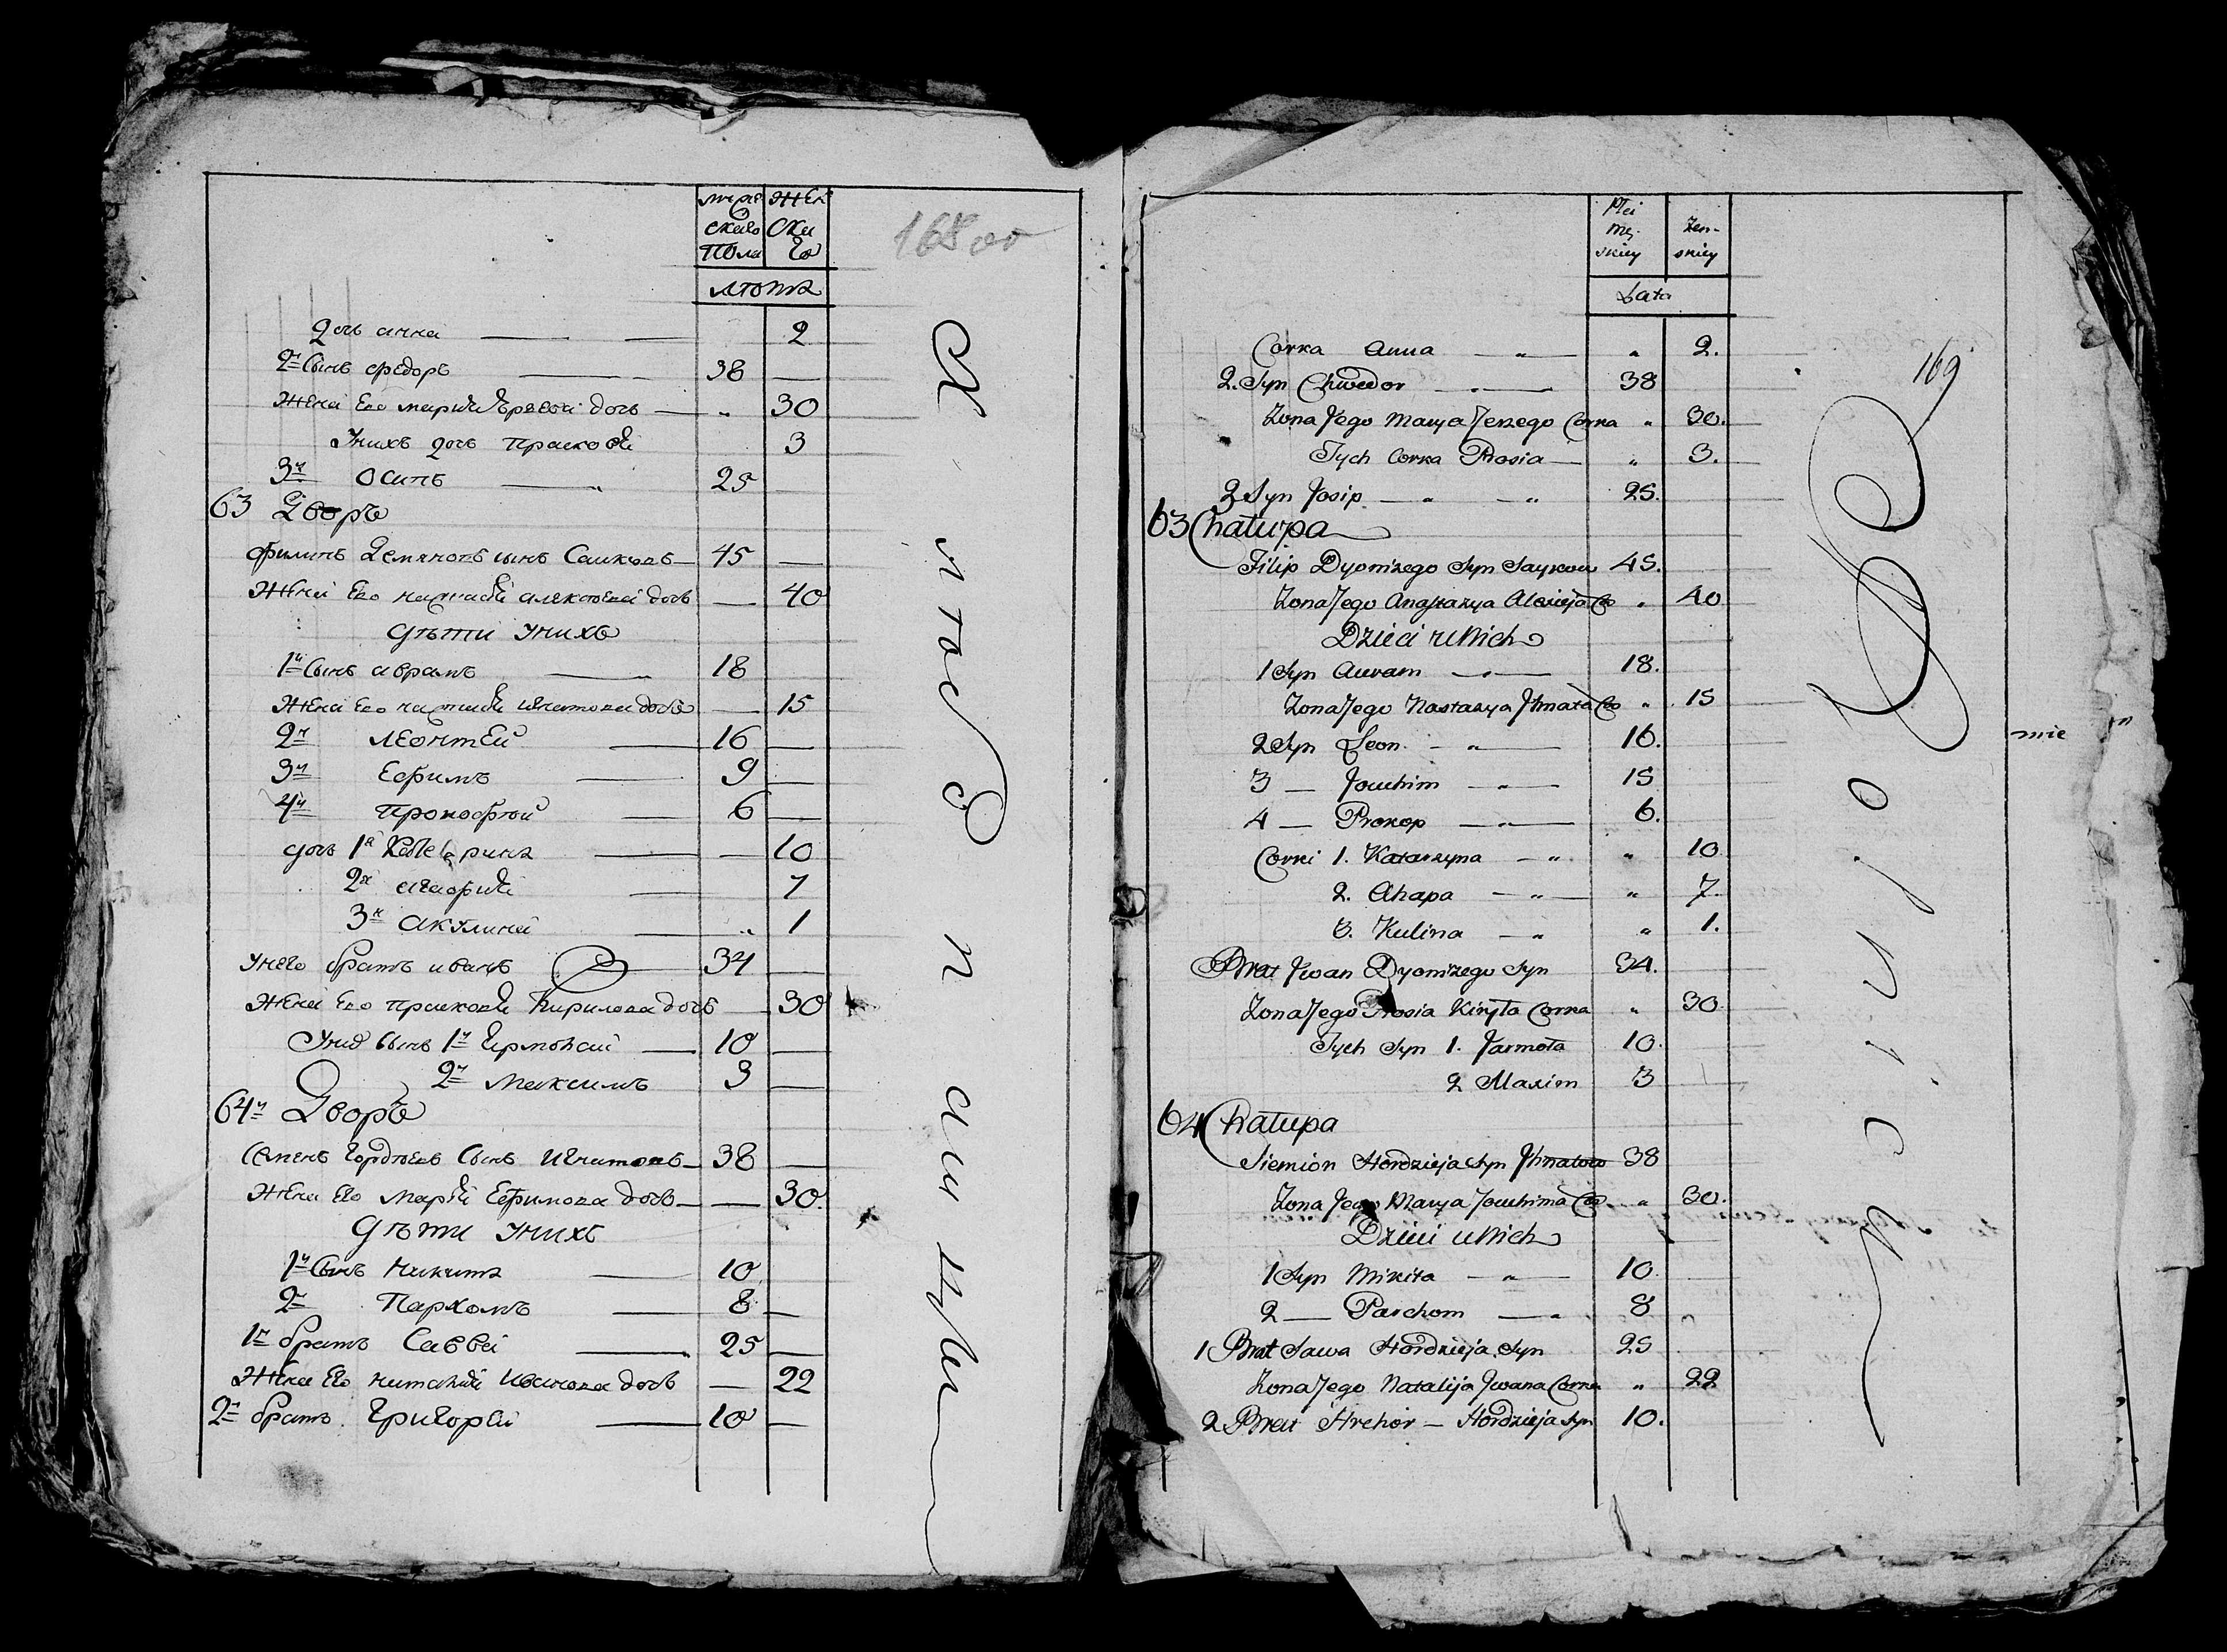 муже
скаго
пола
жен
ска
го
лѣта
168 об
дочь анна 2
2й Сынъ федоръ 38
жена Его марья Юрьева дочь 30
Унихъ дочь прасковья 3
3й Осипъ 25
63 Дворъ
филипъ Демяновъ сынъ Саиковъ 45
жена Его настасья алексеева дочь 40
дѣти Унихъ
1й Сынъ аврамъ 18
жена Его настасья игнатова дочь 15
2й леонтей 16
3й Ефимъ 9
4й прокофей 6
дочь 1я Катерина 10
2я агафия 7
3я акулина 1
Унего братъ иванъ 34
жена Его прасковья Кирилова дочь 30
Унид Сынъ 1й Ермолай 10
2й максимъ 3
64й Дворъ
Семенъ Гордеевъ Сынъ Игнатовъ 38
жена Его марья Ефимова дочь 30.
дѣти Унихъ
1й Сынъ никита 10
2й Пархомъ 8
1й братъ Савва 25
жена Его наталья Иванова дочь 22
2й братъ Григорей 10
Płci
Mę-
skiey
Żen-
skiey
Lata
169
Corka Anna " 2.
2. Syn Chwedor 38
Zona Jego Marya Jerzego Corka " 30.
Tych Corka Prosia " 3.
3 Syn Josip 25.
63 Chałupa
Filip Dyonizego Syn Saykow 45.
Zona Jego Anastazya Alexieja Co " 40
Dzieci u Nich
1 Syn Awram 18.
Zona Jego Nastazya Ihnata Co " 15
2 Syn Leon 16.
3 — Jowchim 15
4 — Prokop 6.
Corki 1. Katarzyna " 10
2. Ahapa " 7.
3. Kulina " 1.
Brat Jwan Dyonizego Syn 34.
Zona Jego Prosia Kiryła Corka " 30.
Tych Syn 1. Jarmoła 10.
2 Maxim 3
64 Chałupa
Siemion Hordzieja Syn Ihnatow 38
Zona Jego Marya Jowchima Co " 30.
Dzieci u Nich
1 Syn Mikita 10.
2 — Parchom 8
1 Brat Sawa Hordzieja Syn 25
Zona Jego Natalija Jwana Corka " 22
2 Brat Hrehor — Hordzieja Syn 10.
mie